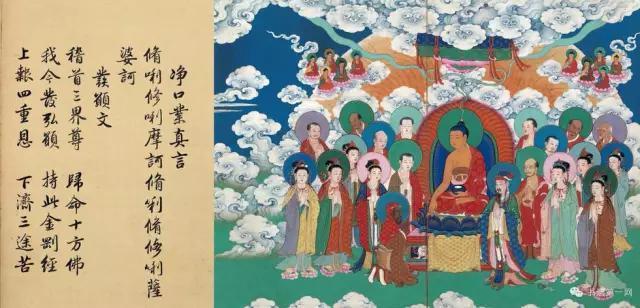 净口業真言
脩唎修唎摩訶脩唎脩修唎薩
婆訶
發願文
稽首三界尊 歸命十方佛
我今發弘願 持此金剛經
上報四重恩 下濟三途苦
书法第一网